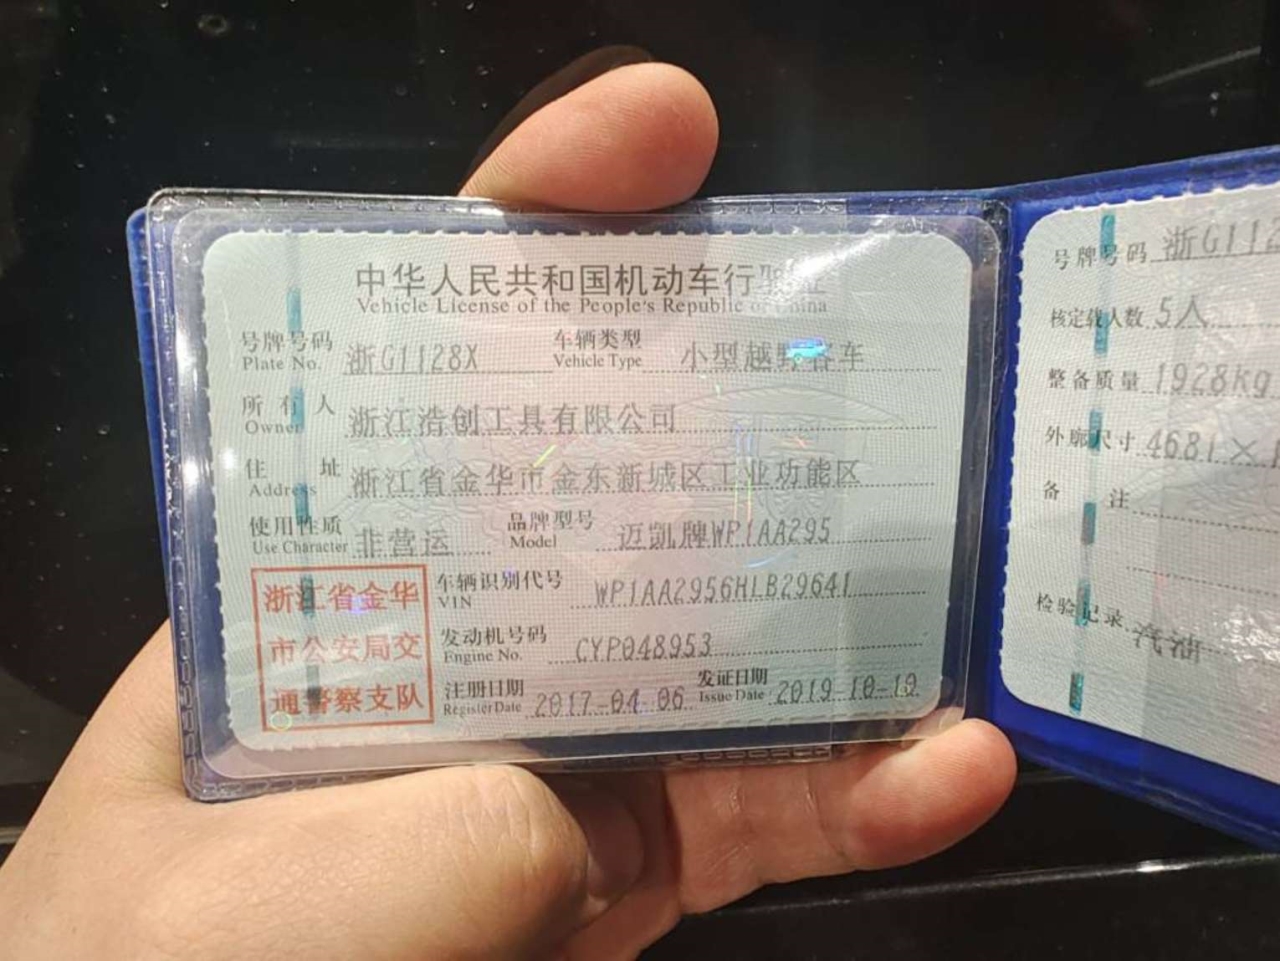 中华人民共和国机动车行驶证
Vehicle License of the People's Republic of China
号牌号码 Plate No. 浙G1128X 车辆类型 Vehicle Type 小型越野客车
所有人 Owner 浙江浩创工具有限公司
住址 Address 浙江省金华市金东新城区工业功能区
使用性质 Use Character 非营运 品牌型号 Model 迈凯牌WP1AA295
车辆识别代号 VIN WP1AA2956HLB29641
发动机号码 Engine No. CYP048953
注册日期 Register Date 2017-04-06 发证日期 Issue Date 2019-10-10
浙江省金华
市公安局交
通警察支队
号牌号码 浙G112
核定载人数 5人
整备质量 1928kg
外廓尺寸 4681×
备注
检验记录 汽油